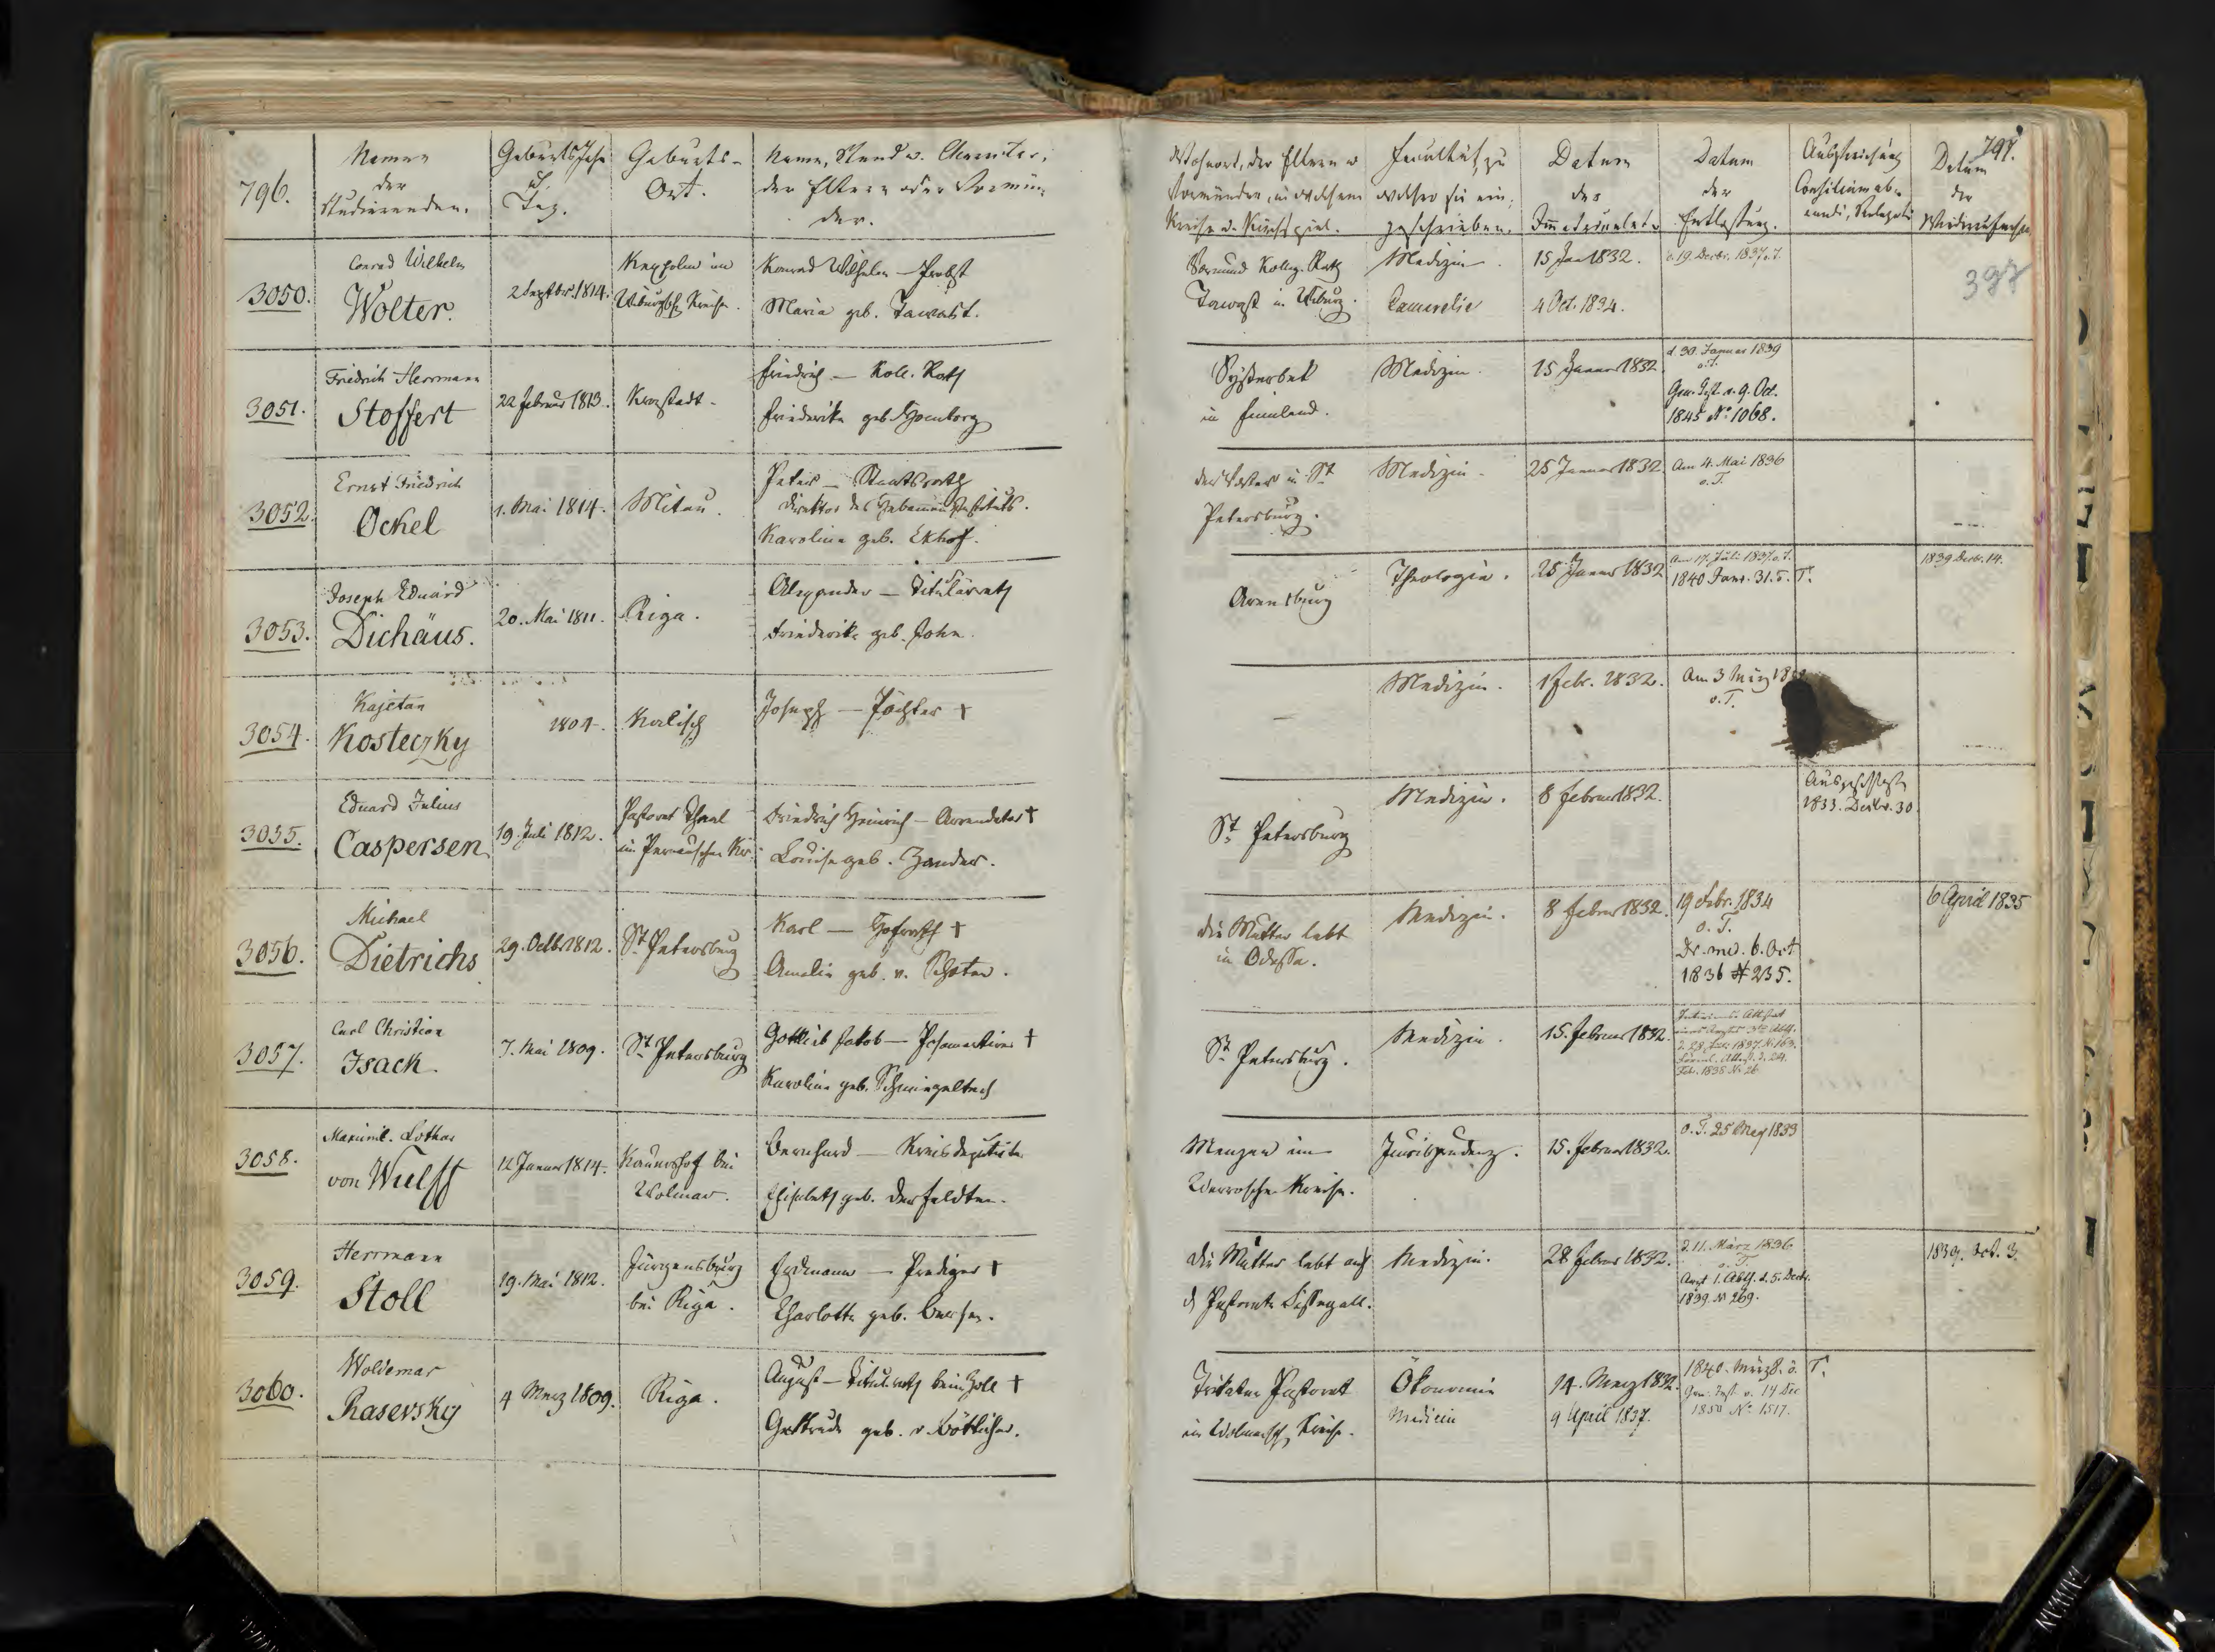 796.
Namen
der
Studierenden.
Geburts Jahr
u.
Tag.
Geburts-
Ort.
Name, Stand u. Charakter,
der Eltern oder Vormün-
der.
Wohnort, der Eltern u
Vormünder, in welchem
Kreise u. Kirchspiel.
Facultät, zu
welcher sie ein-
geschrieben.
Datum
des
Datum
der
Entlassung.
Consilium ab-
eundi, Relegat
Datum
der
797.
397
3050.
Conrad Wilhelm
Wolter.
2 Septbr. 1814.
Kexholm im
Wiburgsch Kreise.
Konrad Wilhelm — Probst
Maria geb. Tawast.
Vormund Colleg. Rath
Tawast in Wiburg.
Medizin.
Cameralia
15 Jan 1832.
4 Oct. 1834.
d. 19. Decbr. 1837. o. T.
3051.
Friedrich Herrmann
Stoffert
22 Februar 1813.
Kronstadt.
Friedrich — Koll. Rath
Friederike geb.
Systerbek
in Finnland.
Medizin.
15 Januar 1832
d. 30. Januar 1839
o. T.
Gou. Inst. v. 9. Oct.
1845 No 1068.
3052.
Ernst Friedrich
Ockel
1. Mai 1814.
Mitau.
Peter — Staatsrath
Direktor des Hebammeninstituts.
Karoline geb. Ekhof.
der Vater in St
Petersburg.
Medizin.
25 Januar 1832
Am 4. Mai 1836
o. T.
3053.
Joseph Eduard
Dichäus.
20. Mai 1811.
Riga.
Alexander — Titulärrath
Friederike geb. John.
Arensburg
Theologie.
25 Januar 1832
Am 17. Juli 1837. o. T.
1840 Janr. 31. o. T.
1839 Decbr. 14.
3054.
Kajetan
Kosteczky
1804.
Kalisch
Joseph — Pächter †
Medizin.
1 Febr. 1832.
Am 3 März 18
o. T.
3055.
Eduard Julius
Caspersen
19. Juli 1812.
Pastorat
im Pernauschen Kr.
Friedrich Heinrich — Arrendator †
Louise geb. Zander.
St Petersburg
Medizin.
8 Februar 1832.
1833. Decbr. 30
3056.
Michael
Dietrichs
29. Octbr 1812.
St Petersburg
Karl — Hofrath †
Amalie geb. v. Schoten.
die Mutter lebt
in Odessa.
Medizin.
8 Februar 1832.
19 Febr. 1834
o. T.
Dr. med. 6. Oct
1836 # 235.
6 April 1835
3057.
Carl Christian
Isack.
7. Mai 1809.
St Petersburg
Gottlieb Jakob — Posamentirer †
Karoline geb.
St Petersburg.
Medizin.
15. Februar 1832.
3058.
Maximil. Lothar
von Wulff
12 Januar 1814.
Kaunershof bei
Wolmar.
Bernhard — Kreisdeputirter
Elisabeth geb. Derfeldten.
Menzen im
Werroschen Kreise.
Jurisprudenz.
15. Februar 1832.
o. T. 25 May 1833
3059.
Herrmann
Stoll
19. Mai 1812.
Jürgensburg
bei Riga.
Erdmann — Prediger †
Charlotte geb.
Die Mutter lebt auf
d Pastorate Sissegall.
Medizin.
28 Februar 1832.
d. 11. März 1836
o. T.
Arzt 1. Abth. d. 5. Decbr.
1839 No 269.
1839. Oct. 3.
3060.
Woldemar
Rasevsky
4 Merz 1809.
Riga.
August — Titul. rath beim Zoll †
Gertrude geb. v. Böttticher.
Pastorat
im Wolmarsch Kreise.
Ökonomie
Medicin
14. Merz 1832.
9 April 1837.
1840. März 8. o. T.
Gou. Inst. v. 14 Dec
1850 No 1517.